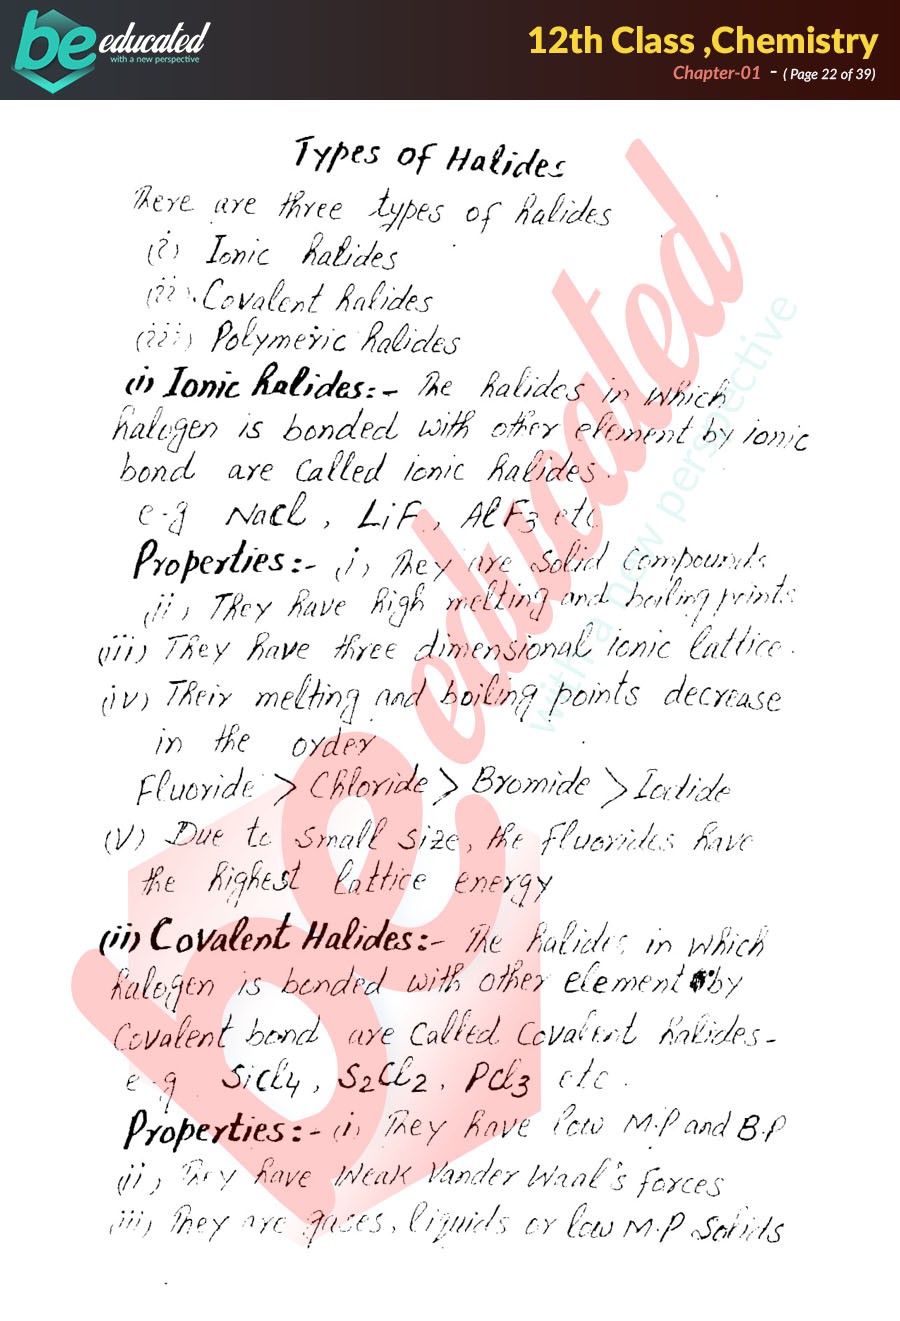 be educated
with a new perspective
12th Class ,Chemistry
Chapter-01 - ( Page 22 of 39)
Types of Halides
There are three types of halides
(i) Ionic halides
(ii) Covalent halides
(iii) Polymeric halides
(i) Ionic halides:- The halides in which
halogen is bonded with other element by ionic
bond are called ionic halides.
e-g NaCl, LiF, AlF3 etc
Properties:- (i) They are solid compounds
(ii) They have high melting and boiling points.
(iii) They have three dimensional ionic lattice.
(iv) Their melting and boiling points decrease
in the order
Fluoride > Chloride > Bromide > Iodide
(V) Due to small size, the fluorides have
the highest lattice energy
(ii) Covalent Halides:- The halides in which
halogen is bonded with other element by
Covalent bond are called Covalent halides-
e-g SiCl4, S2Cl2, PCl3 etc.
Properties:- (i) They have low M.P and B.P
(ii) They have weak Vander Waal's forces
(iii) They are gases, liquids or low M.P solids
be educated
with a new perspective